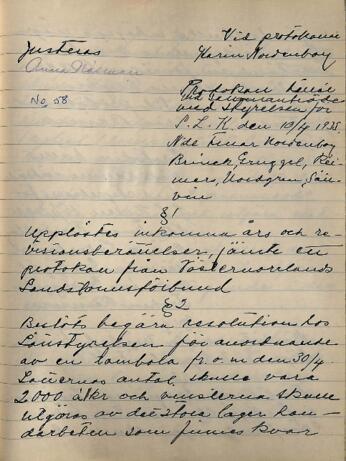 Vid protokollet
Justeras Karin Nordenborg
Anna
No. 58
Protokoll hållet
vid sammanträde
med styrelsen för
S. L. K. den 19/4 1935
N:de Fruar Nordenborg
Brinck, Gruggel, Rei-
mers, Nordgren,
§ 1
Upplästes inkomna års och re-
visionsberättelser, jämte ett
protokoll från Västernorrlands
§ 2
Beslöts begära resolution hos
Länsstyrelsen för anordnande
av en tombola fr. o. m den 30/4
Lotternas antal skulle vara
2000 à 1kr och vinsterna skulle
utgöras av det stora lager han-
darbeten som finnes kvar